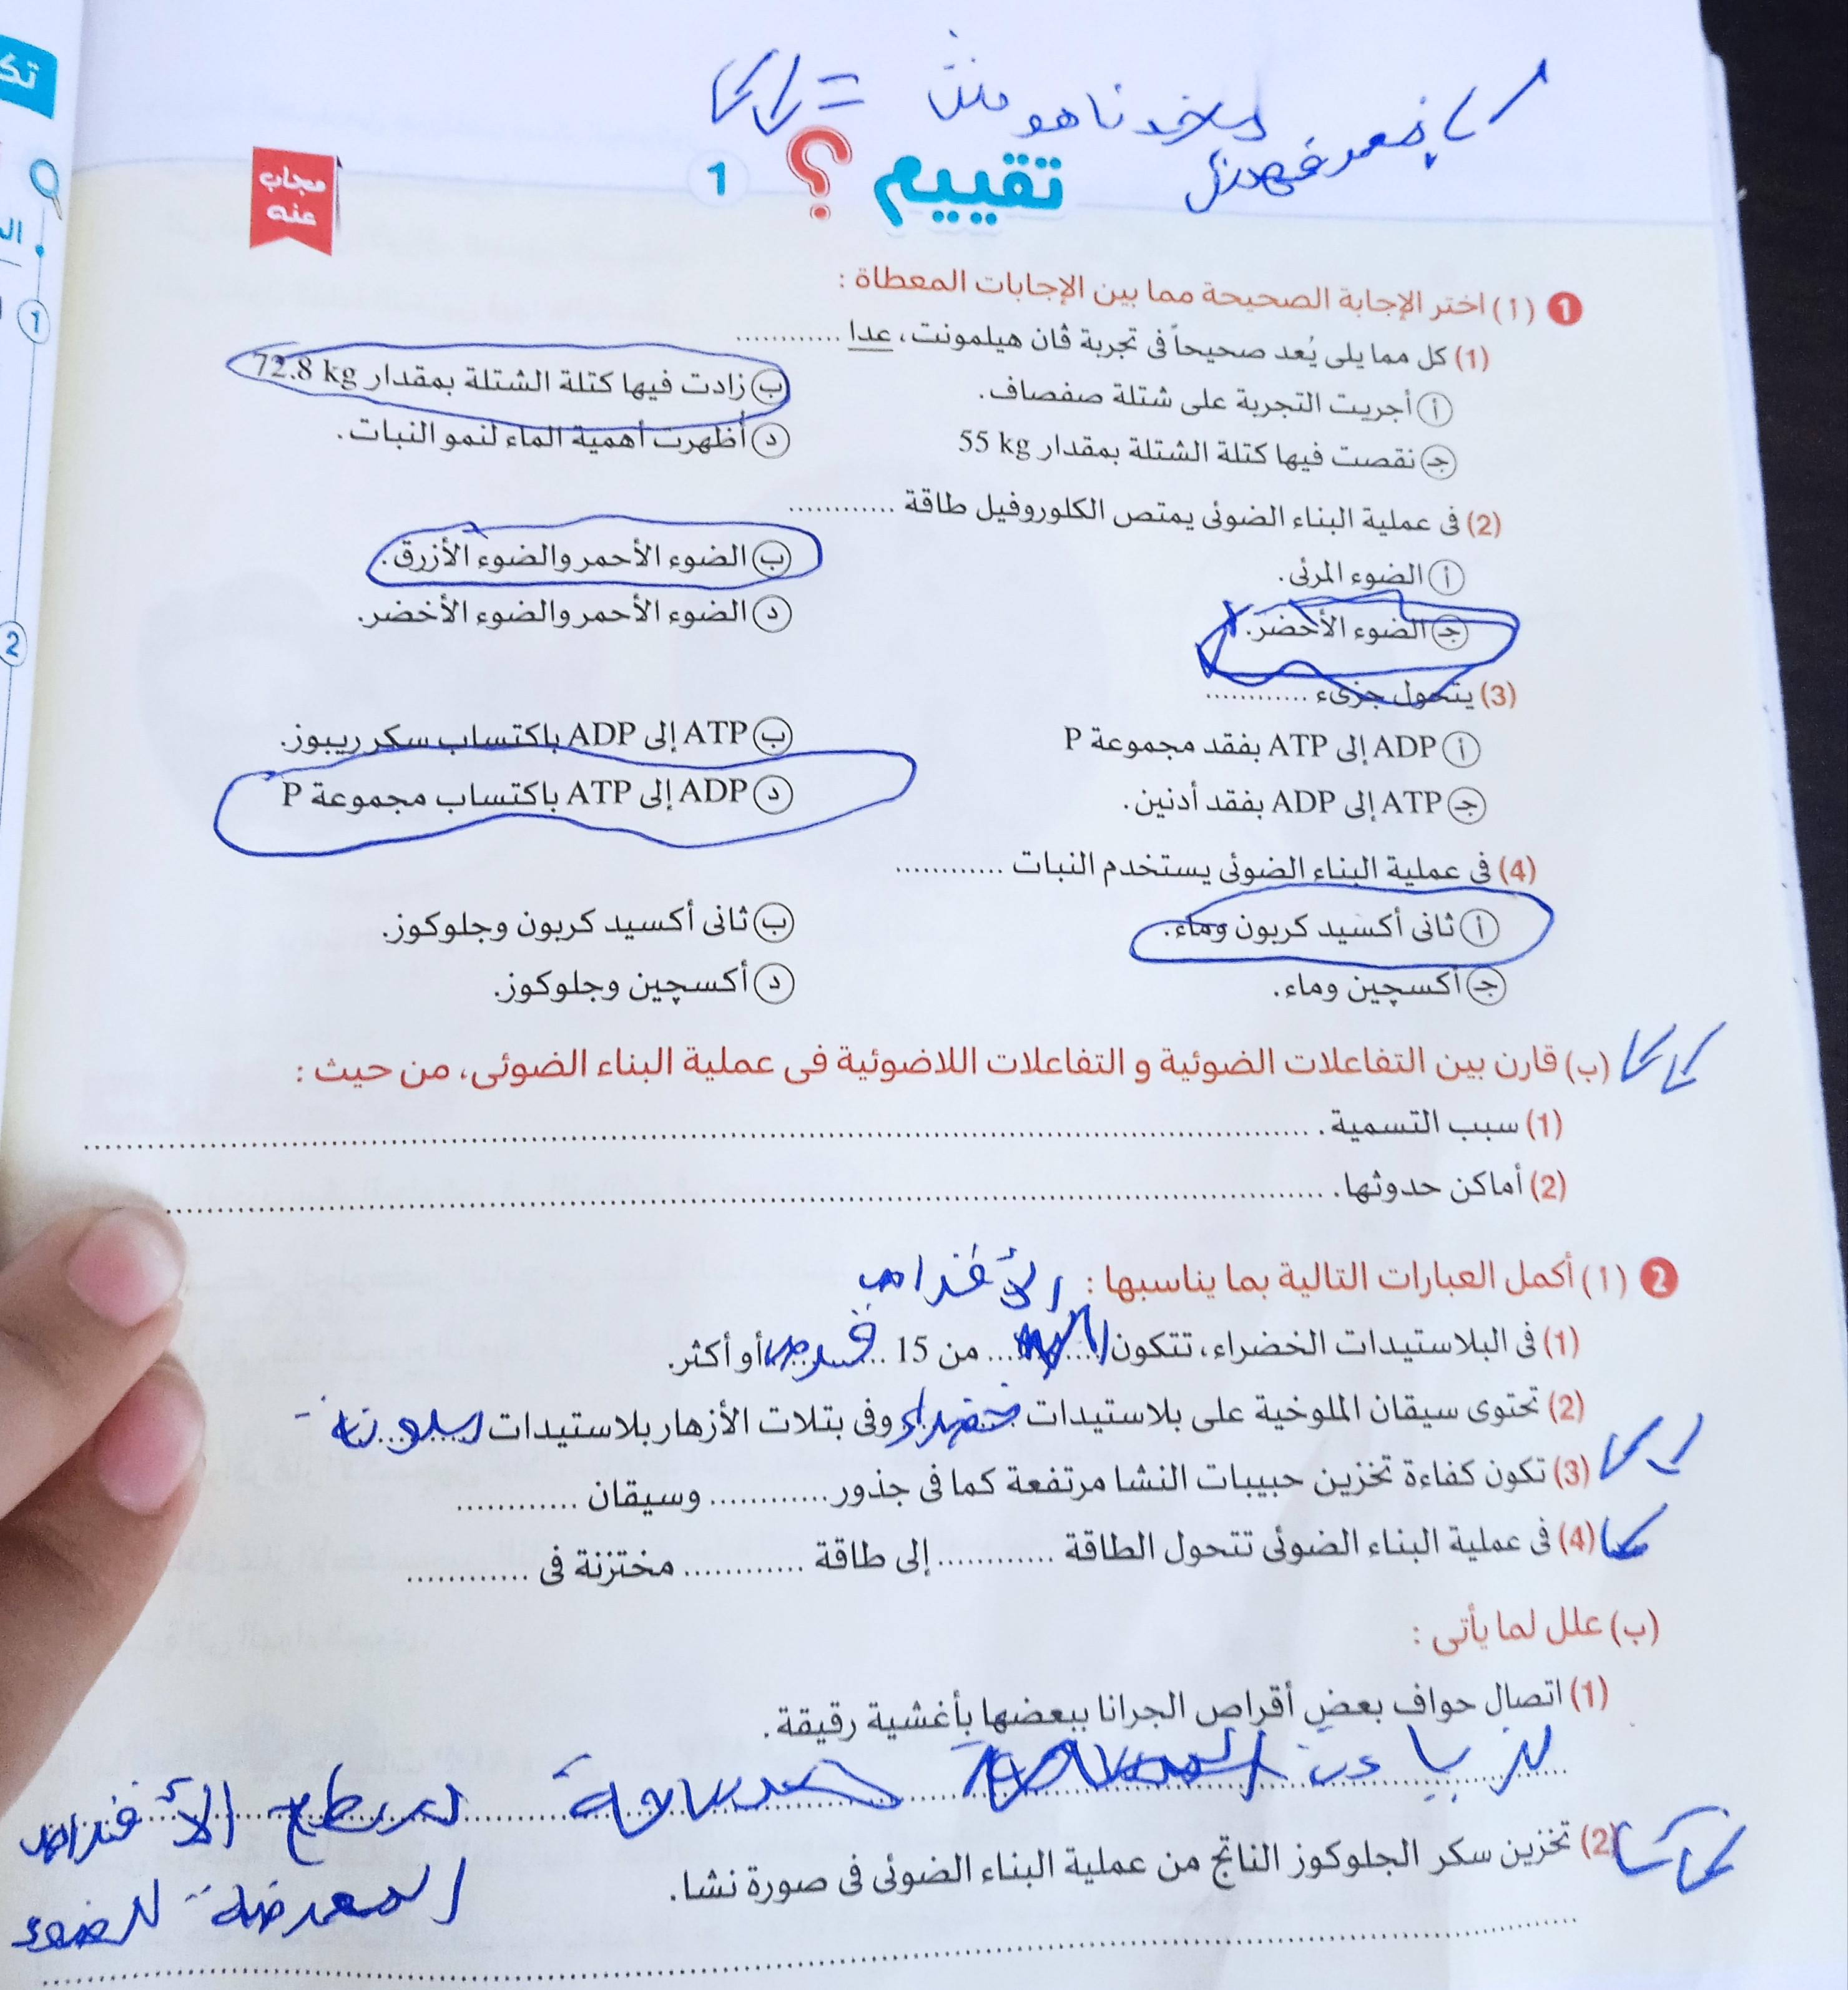 تقييم ؟ 1
مجاب
عنه
1 (أ) اختر الإجابة الصحيحة مما بين الإجابات المعطاة :
(1) كل مما يلى يُعد صحيحاً فى تجربة ڤان هيلمونت، عدا ............
أ أجريت التجربة على شتلة صفصاف.
ب زادت فيها كتلة الشتلة بمقدار 72.8 kg
جـ نقصت فيها كتلة الشتلة بمقدار 55 kg
د أظهرت أهمية الماء لنمو النبات.
(2) فى عملية البناء الضوئى يمتص الكلوروفيل طاقة ............
أ الضوء المرئى.
ب الضوء الأحمر والضوء الأزرق.
جـ الضوء الأخضر.
د الضوء الأحمر والضوء الأخضر.
(3) يتحول جزىء ............
أ ADP إلى ATP بفقد مجموعة P
ب ATP إلى ADP باكتساب سكر ريبوز.
جـ ATP إلى ADP بفقد أدنين.
د ADP إلى ATP باكتساب مجموعة P
(4) فى عملية البناء الضوئى يستخدم النبات ............
أ ثانى أكسيد كربون وماء.
ب ثانى أكسيد كربون وجلوكوز.
جـ أكسچين وماء.
د أكسچين وجلوكوز.
(ب) قارن بين التفاعلات الضوئية و التفاعلات اللاضوئية فى عملية البناء الضوئى، من حيث :
(1) سبب التسمية.
(2) أماكن حدوثها.
2 (أ) أكمل العبارات التالية بما يناسبها : الأقراص
(1) فى البلاستيدات الخضراء، تتكون من 15 قرص أو أكثر.
(2) تحتوى سيقان الملوخية على بلاستيدات خضراء وفى بتلات الأزهار بلاستيدات ملونة
(3) تكون كفاءة تخزين حبيبات النشا مرتفعة كما فى جذور ............ وسيقان ............
(4) فى عملية البناء الضوئى تتحول الطاقة ............ إلى طاقة ............ مختزنة فى ............
(ب) علل لما يأتى :
(1) اتصال حواف بعض أقراص الجرانا ببعضها بأغشية رقيقة.
لزيادة مساحة سطح الأقراص
المعرضة للضوء
(2) تخزين سكر الجلوكوز الناتج من عملية البناء الضوئى فى صورة نشا.
1
2